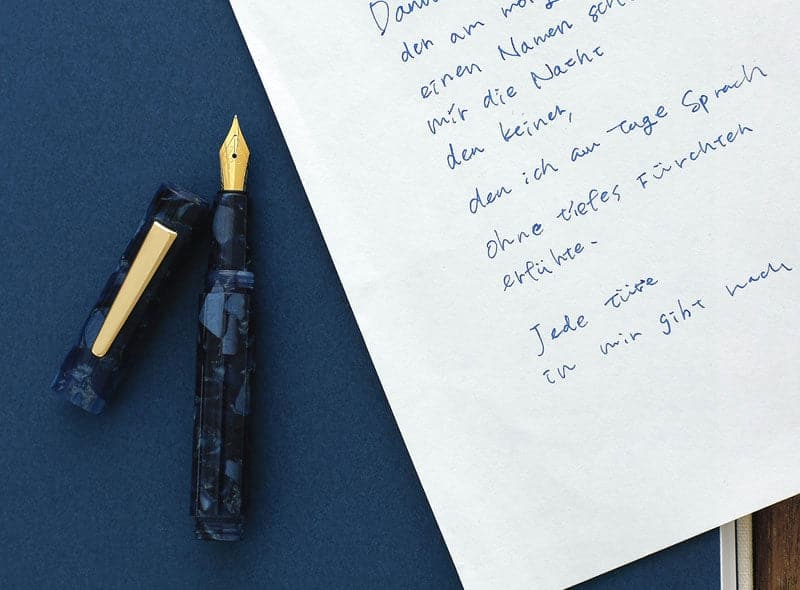 den am
einen Namen
mir die Nacht
den keiner,
den ich am tage Sprach
ohne tiefes Fürchten
erführe.
Jede türe
in mir gibt nach